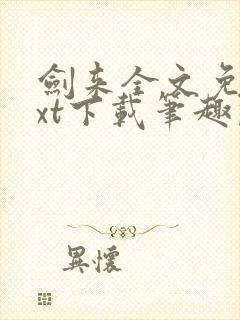 劍来全文免
xt下載筆趣
異懷